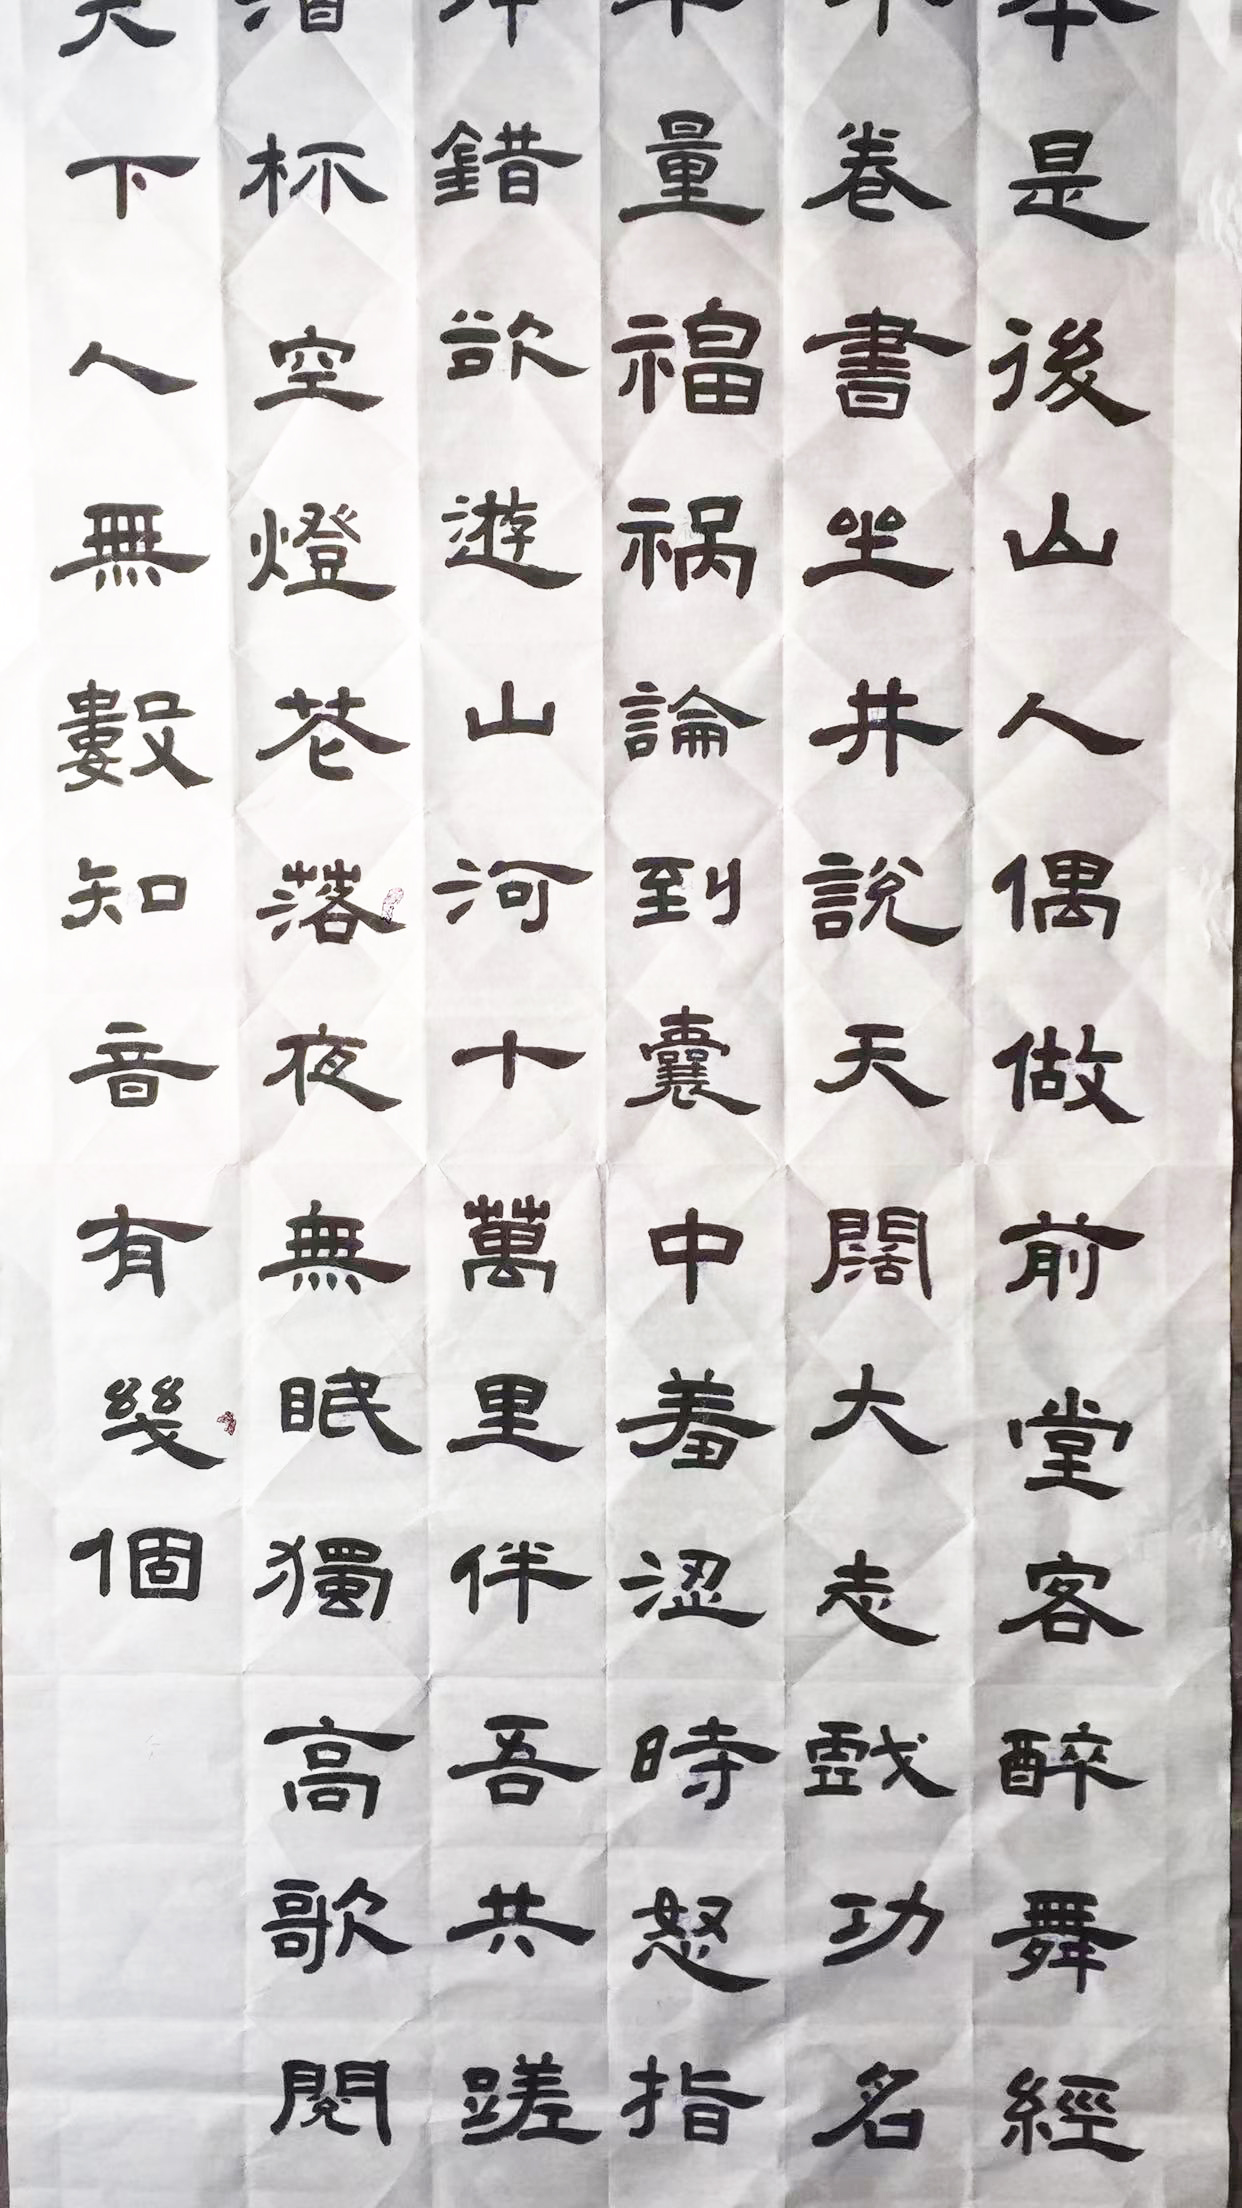 本是後山人偶做前堂客醉舞經
卷書坐井說天闊大志戲功名
量福祸論到囊中羞涩時怒指
錯欲遊山河十萬里伴吾共蹉
杯空燈花落夜無眠獨高歌閱
天下人無數知音有幾個